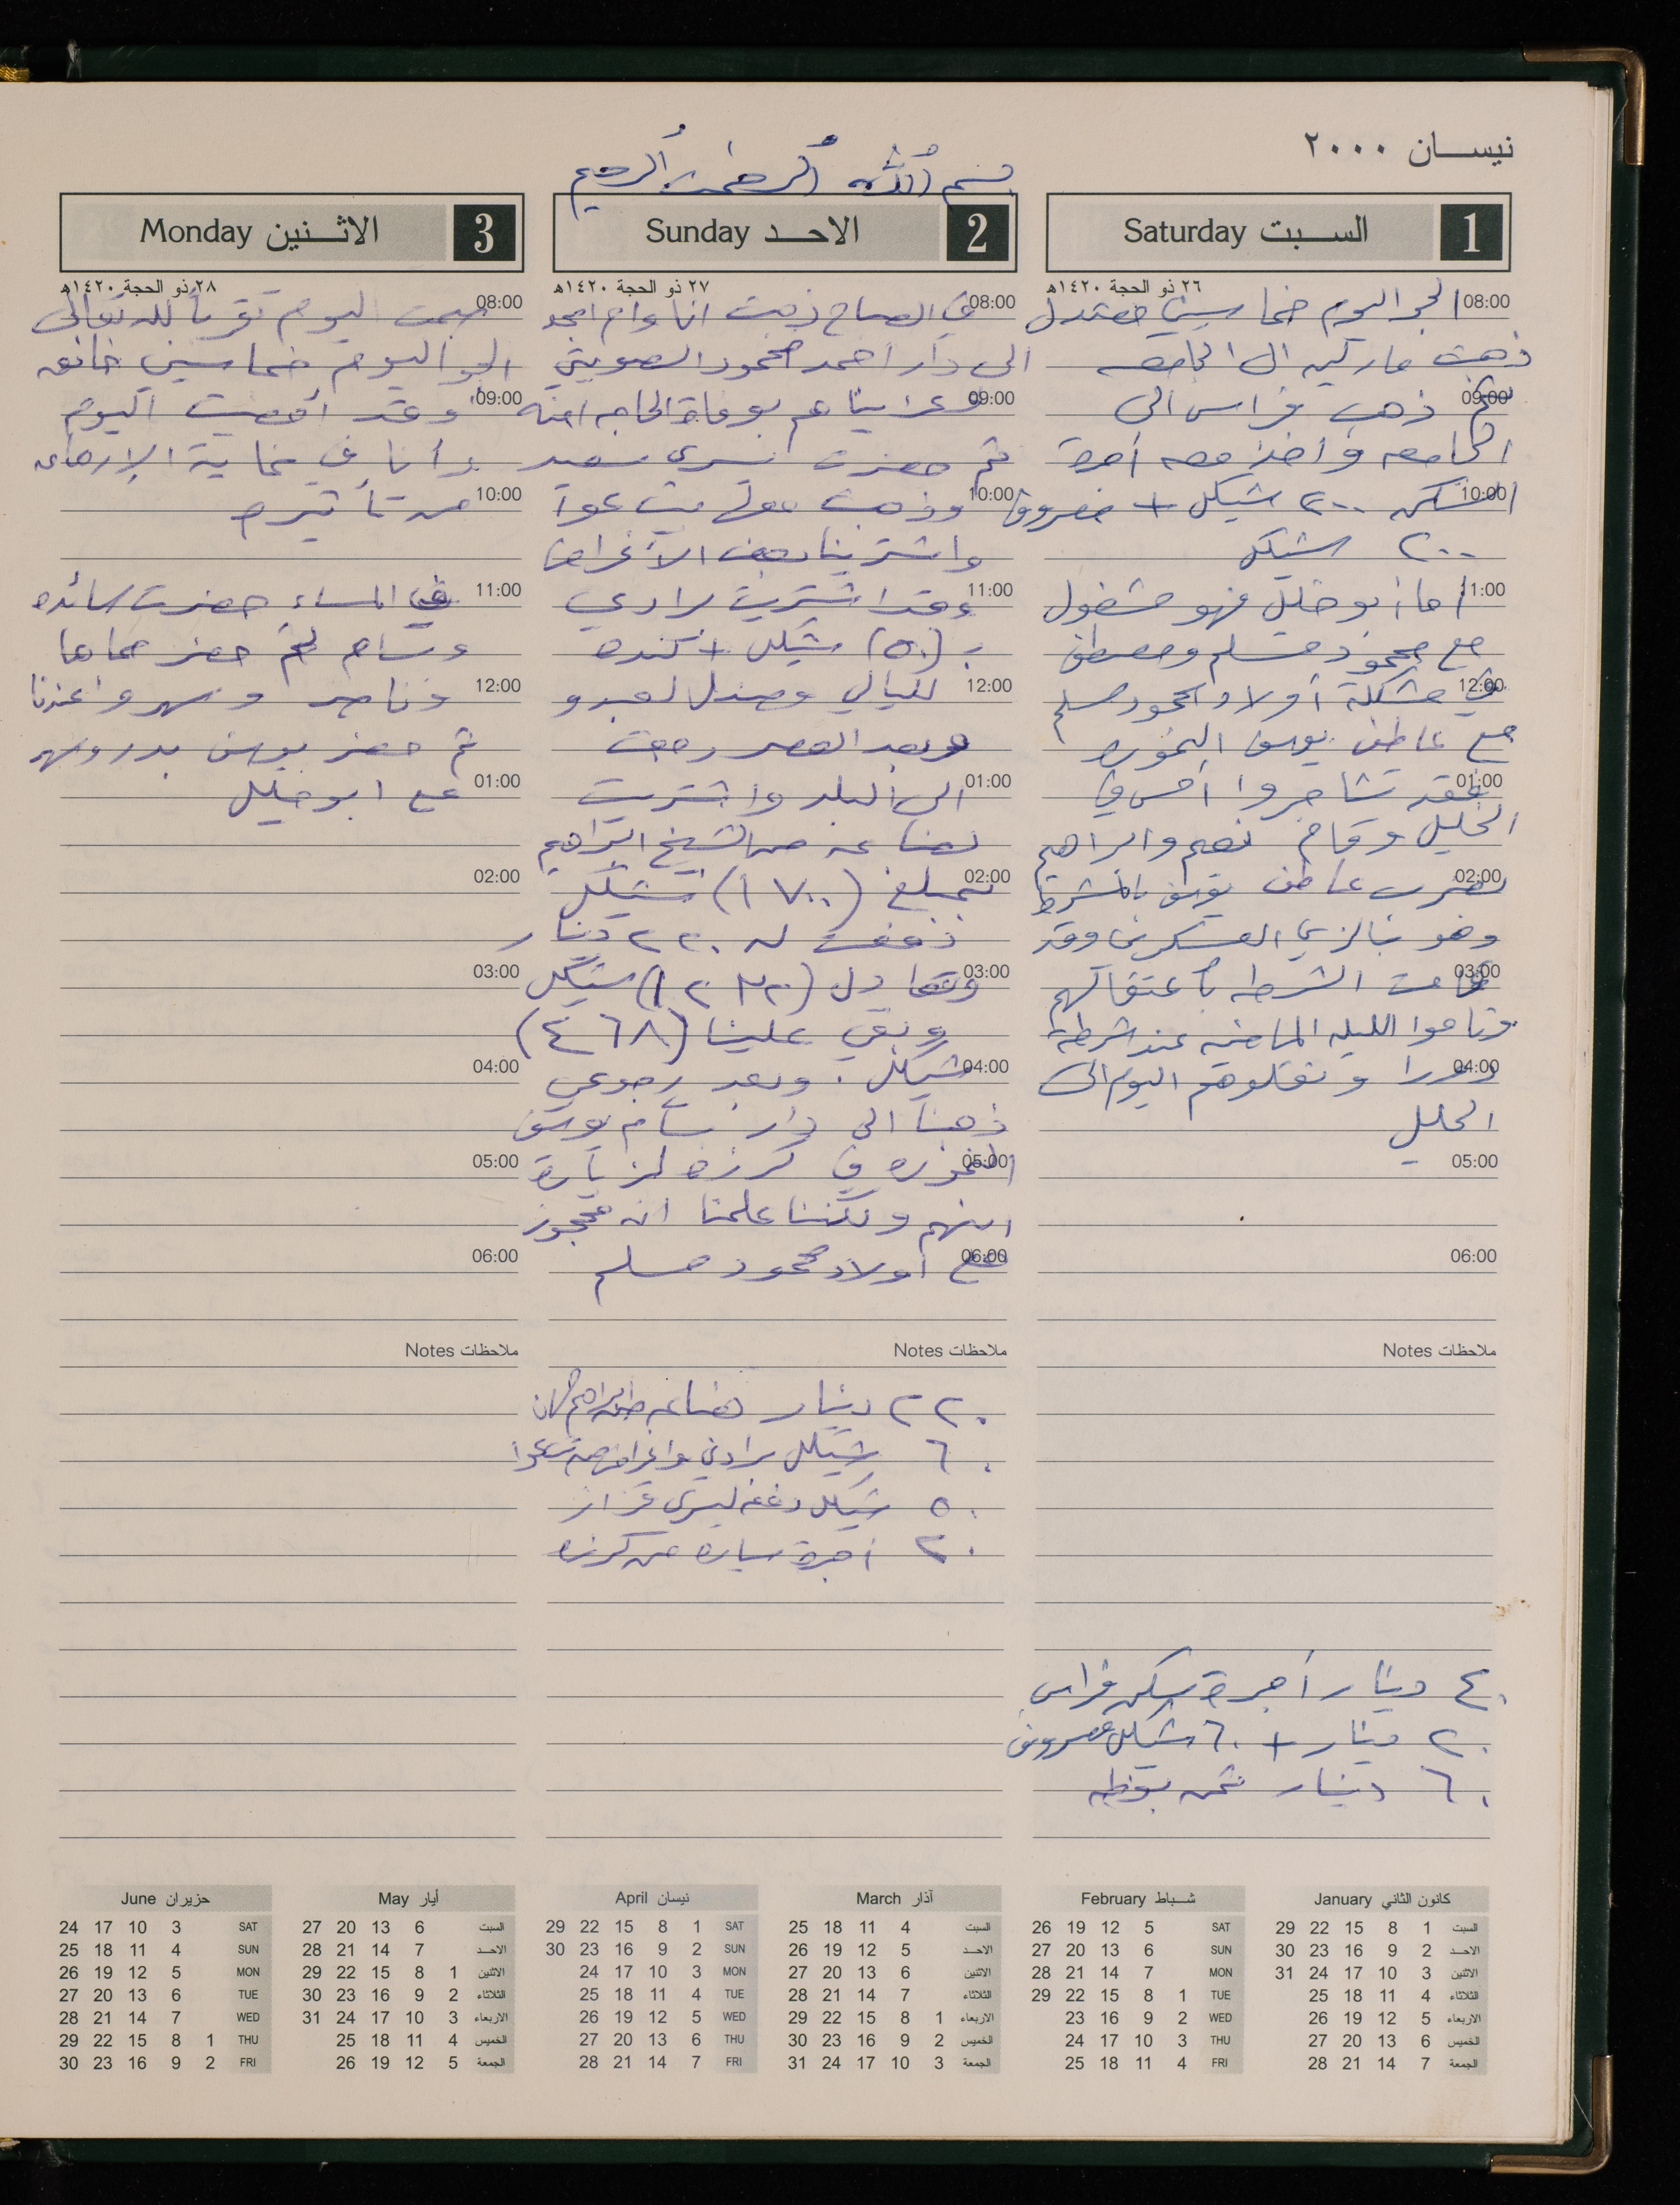 نيسان ٢٠٠٠
بسم الله الرحمن الرحيم
1 السبت Saturday
٢٦ ذو الحجة ١٤٢٠هـ
08:00 الجو اليوم خماسيني معتدل
ذهبت ماركيه الى الجامعه
09:00 ثم ذهب فراس الى
الجامعه وأخذ معه أجرة
10:00 السكن ٢٠٠ شيكل + مصروف
٢٠٠ شيكل
11:00 أما أبو خليل فهو مشغول
مع محمود مسلم ومصطفى
12:00 في مشكلة أولاد محمود مسلم
مع عاطف يوسف النموره
01:00 فقد تشاجروا أمس في
الخليل وقام نعيم وابراهيم
02:00 بضرب عاطف يوسف بالمشرط
وهو بالزي العسكري وقد
03:00 قامت الشرطه باعتقالهم
وناموا الليله الماضيه عند شرطة
04:00 دورا ونقلوهم اليوم الى
الخليل
05:00
06:00
ملاحظات Notes
٤٠ دينار أجرة سكن فراس
٢٠ دينار + ٦٠ شيكل مصروف
٦٠ دينار ثمن
2 الاحد Sunday
٢٧ ذو الحجة ١٤٢٠هـ
08:00 في الصباح ذهبت انا وام امجد
الى دار احمد محمود السويتي
09:00 وعزيناهم بوفاة الحاجه امنه
ثم حضرت يسرى سعيد
10:00 وذهبت معها بيت عوا
واشترينا بعض الأغراض
11:00 وقد اشتريت برادي
بـ (٥٠) شيكل + كندره
12:00 لليالي وصندل لعبدو
وبعد العصر رجعت
01:00 الى البلد واشتريت
بضاعه من الشيخ ابراهيم
02:00 بمبلغ (١٧٠٠) شيكل
دفعت له ٢٢٠ دينار
03:00 وتعادل (١٢٣٢) شيكل
وبقي علينا (٤٦٨)
04:00 شيكل . وبعد رجوعي
ذهبنا الى دار بسام يوسف
05:00 النموره في كرزه لزيارة
ابنهم ولكننا علمنا انه محجوز
06:00 مع اولاد محمود مسلم
ملاحظات Notes
٢٢٠ دينار بضاعه من ابراهيم
٦٠ شيكل برادي واغراض من بيت عوا
٥٠ شيكل دفعه ليسرى
٢٠ أجرة سياره من كرزه
3 الاثنين Monday
٢٨ ذو الحجة ١٤٢٠هـ
08:00 صمت اليوم تقرباً لله تعالى
الجو اليوم خماسيني خانق
09:00 وقد أمضيت اليوم
وأنا في غاية الإرهاق
10:00 من تأثيره
11:00 في المساء حضرت سائده
وسام ثم حضر حماها
12:00 وناصر وسهروا عندنا
ثم حضر يونس بدر وسهر
01:00 مع ابو خليل
02:00
03:00
04:00
05:00
06:00
ملاحظات Notes
كانون الثاني January
السبت 1 8 15 22 29
الاحد 2 9 16 23 30
الاثنين 3 10 17 24 31
الثلاثاء 4 11 18 25
الاربعاء 5 12 19 26
الخميس 6 13 20 27
الجمعة 7 14 21 28
شباط February
SAT 5 12 19 26
SUN 6 13 20 27
MON 7 14 21 28
TUE 1 8 15 22 29
WED 2 9 16 23
THU 3 10 17 24
FRI 4 11 18 25
آذار March
السبت 4 11 18 25
الاحد 5 12 19 26
الاثنين 6 13 20 27
الثلاثاء 7 14 21 28
الاربعاء 1 8 15 22 29
الخميس 2 9 16 23 30
الجمعة 3 10 17 24 31
نيسان April
SAT 1 8 15 22 29
SUN 2 9 16 23 30
MON 3 10 17 24
TUE 4 11 18 25
WED 5 12 19 26
THU 6 13 20 27
FRI 7 14 21 28
أيار May
السبت 6 13 20 27
الاحد 7 14 21 28
الاثنين 1 8 15 22 29
الثلاثاء 2 9 16 23 30
الاربعاء 3 10 17 24 31
الخميس 4 11 18 25
الجمعة 5 12 19 26
حزيران June
SAT 3 10 17 24
SUN 4 11 18 25
MON 5 12 19 26
TUE 6 13 20 27
WED 7 14 21 28
THU 1 8 15 22 29
FRI 2 9 16 23 30